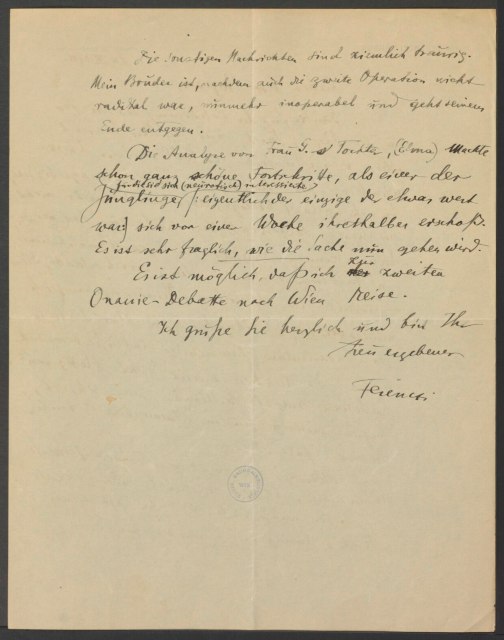 Die sonstigen Nachrichten sind ziemlich traurig.
Mein Bruder ist, nachdem auch die zweite Operation nicht
radikal war, nunmehr inoperabel und geht seinem
Ende entgegen.
Die Analyse von Frau G.s Tochter, (Elma) machte
schon ganz schöne Fortschritte, als einer der
für die sie sich (neurotisch) interessierte
Jünglinge, [: eigentlich der einzige der etwas wert
war:] sich vor einer Woche ihrethalber erschoß.
Es ist sehr fraglich, wie die Sache nun gehen wird.
Es ist möglich, daß ich zur zweiten
Onanie-Debatte nach Wien reise.
Ich grüße Sie herzlich und bin Ihr
treu ergebener
Ferenczi